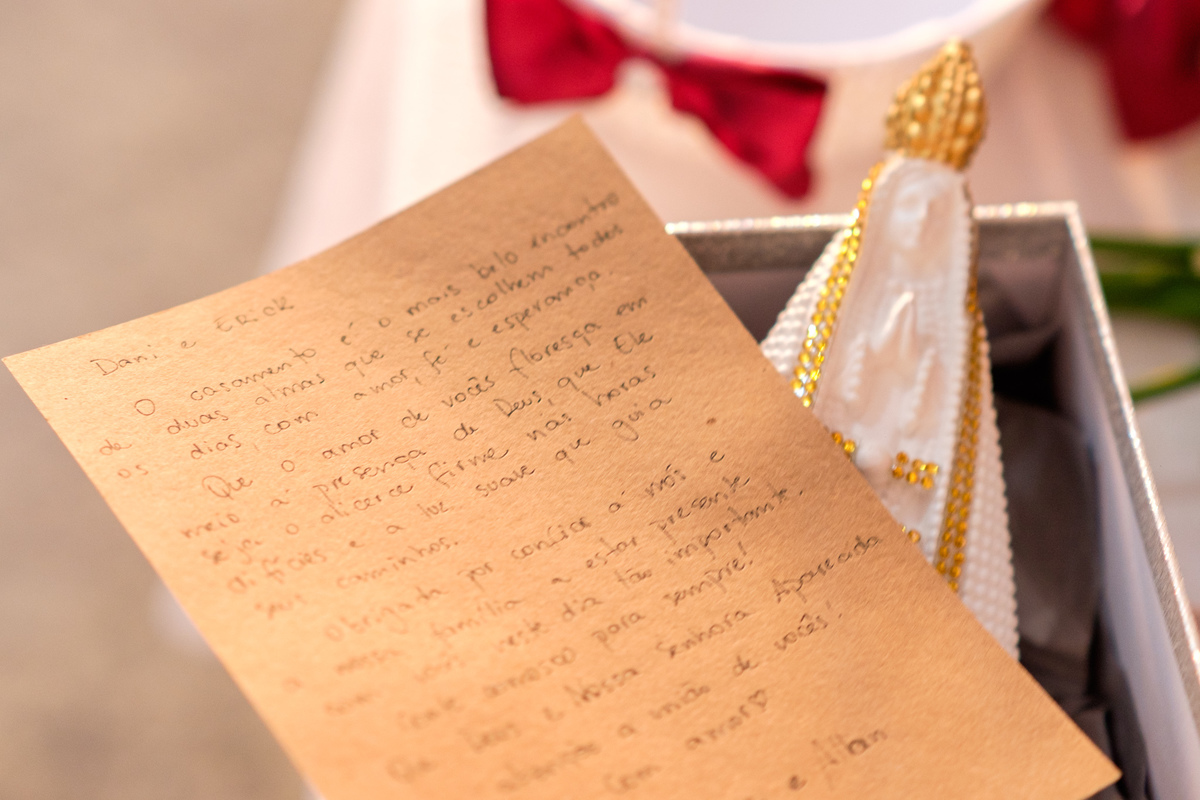 Dani e Erick
O casamento é o mais belo encontro
de duas almas que se escolhem todos
os dias, com amor, fé e esperança.
Que o amor de vocês floresça em
meio a presença de Deus, que Ele
seja o alicerce firme nas horas
difíceis e a luz suave que guia
seus caminhos.
Obrigada por confiar a nós e
a nossa família a estar presente
com vocês neste dia tão importante.
Conte conosco para sempre!
Que Deus e Nossa Senhora Aparecida
abençoe a união de vocês!
Com amor♡
e Allan